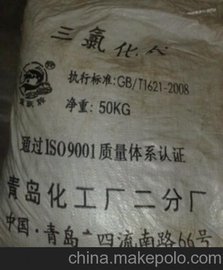 三氯化
执行标准:GB/T1621-2008
净重:50KG
通过ISO9001质量体系认证
青岛化工厂二分厂
中国·青岛 四流南路66号
china.makepolo.com